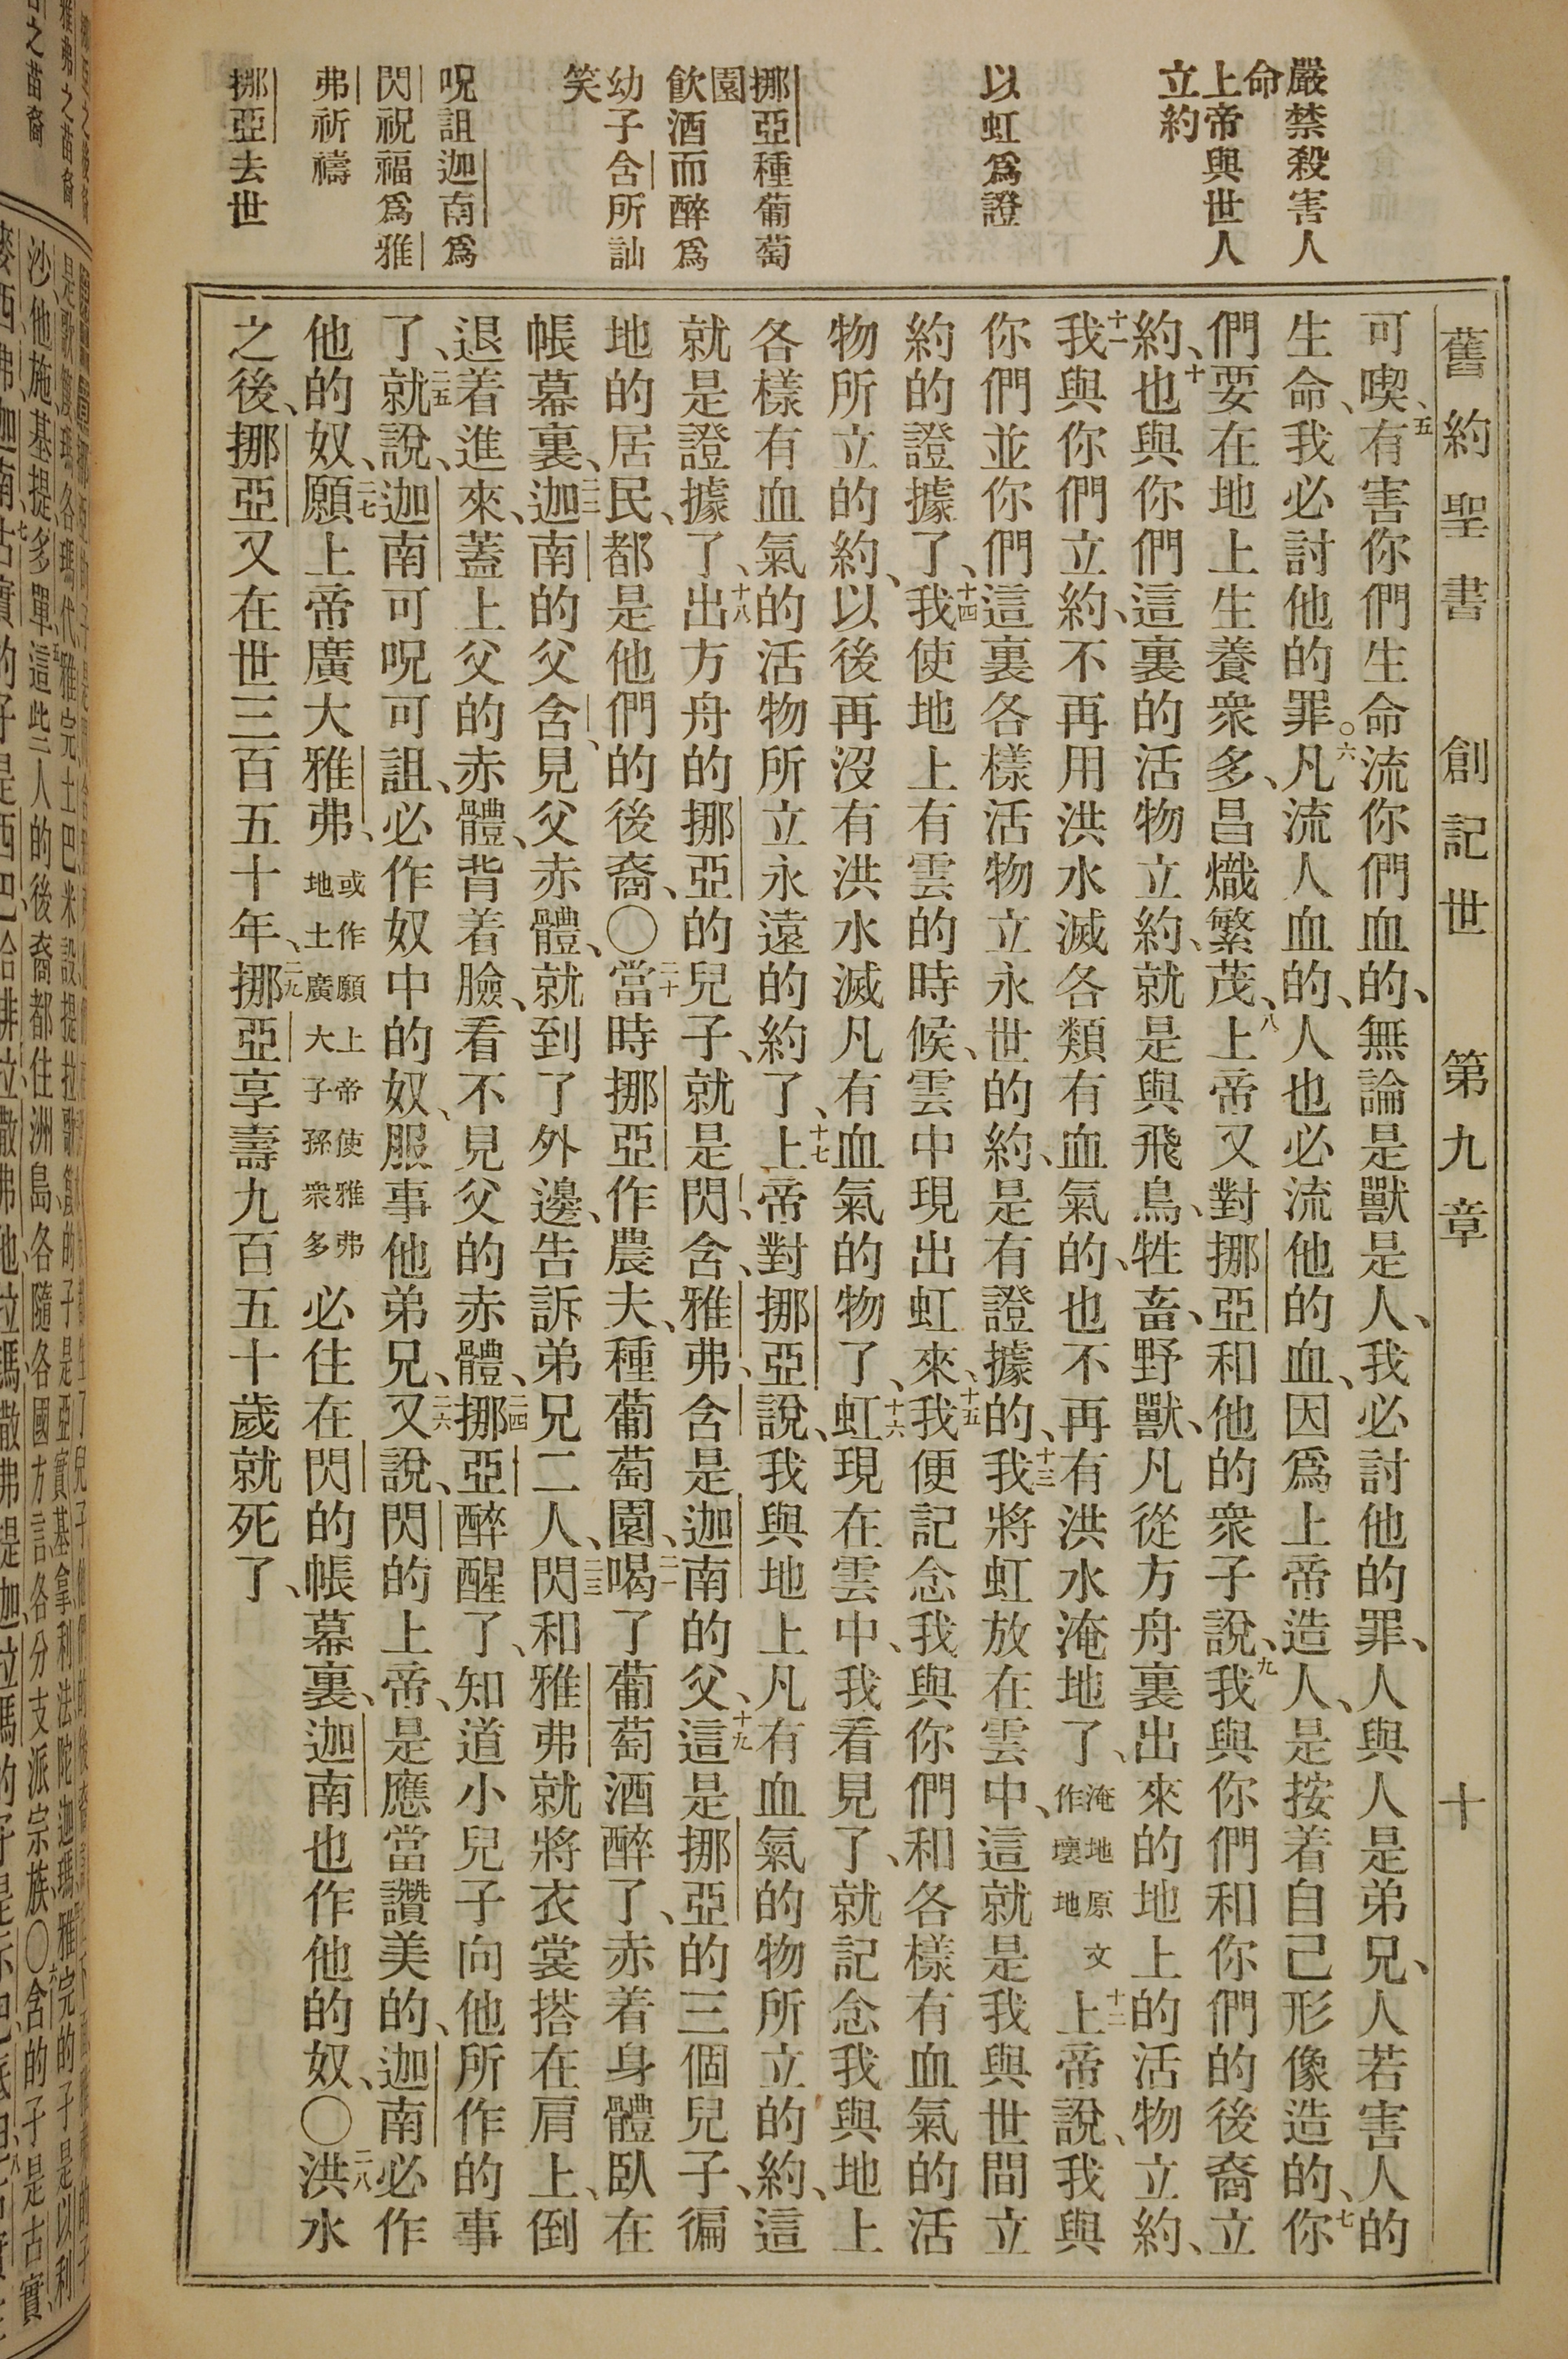 舊約聖書 創記世 第九章 十
嚴禁殺害人
命
上帝與世人
立約
以虹爲證
挪亞種葡萄
園
飲酒而醉爲
幼子含所訕
笑
呪詛迦南爲
閃祝福爲雅
弗祈禱
挪亞去世
可喫、五有害你們生命流你們血的、無論是獸是人、我必討他的罪、人與人是弟兄、人若害人的
生命、我必討他的罪。六凡流人血的、人也必流他的血、因爲上帝造人、是按着自己形像造的、七你
們要在地上生養衆多、昌熾繁茂、八上帝又對挪亞和他的衆子說、九我與你們和你們的後裔立
約、十也與你們這裏的活物立約、就是與飛鳥、牲畜、野獸、凡從方舟裏出來的地上的活物立約、
十一我與你們立約、不再用洪水滅各類有血氣的、也不再有洪水淹地了、淹地原文作壞地十二上帝說、我與
你們並你們這裏各樣活物立永世的約、是有證據的、十三我將虹放在雲中、這就是我與世間立
約的證據了、十四我使地上有雲的時候、雲中現出虹來、十五我便記念我與你們和各樣有血氣的活
物所立的約、以後再沒有洪水滅凡有血氣的物了、十六虹現在雲中、我看見了、就記念我與地上
各樣有血氣的活物所立永遠的約了、十七上帝對挪亞說、我與地上凡有血氣的物所立的約、這
就是證據了、十八出方舟的挪亞的兒子、就是閃、含、雅弗、含是迦南的父、十九這是挪亞的三個兒子、徧
地的居民、都是他們的後裔、〇二十當時挪亞作農夫、種葡萄園、二一喝了葡萄酒醉了、赤着身體臥在
帳幕裏、二二迦南的父含、見父赤體、就到了外邊、告訴弟兄二人、二三閃和雅弗就將衣裳搭在肩上、倒
退着進來、蓋上父的赤體、背着臉、看不見父的赤體、二四挪亞醉醒了、知道小兒子向他所作的事
了、二五就說、迦南可呪可詛、必作奴中的奴、服事他弟兄、二六又說、閃的上帝、是應當讚美的、迦南必作
他的奴、二七願上帝廣大雅弗、或作願上帝使雅弗地土廣大子孫衆多必住在閃的帳幕裏、迦南也作他的奴、〇二八洪水
之後、挪亞又在世三百五十年、二九挪亞享壽九百五十歲就死了、